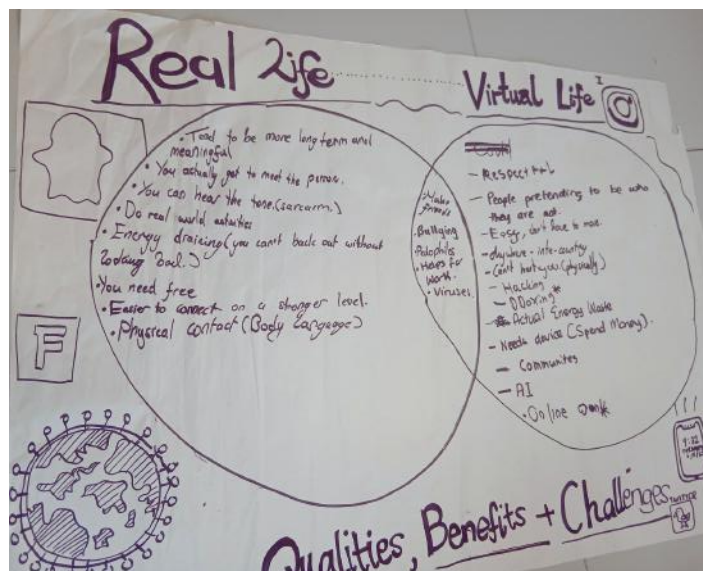 Real Life
Virtual Life
• Tend to be more long term and
meaningful
• You actually get to meet the person.
• You can hear the tone. (sarcarm.)
• Do real world
• Energy draining (you can't back out without
looking bad.)
• You need free
• Easier to connect on a stronger level.
• Physical contact (Body Language)
• Make
friends
• Bullying
• Helps for
work.
• Viruses.
- Respectful
- People pretending to be who
they are not.
- Easy, don't have to move.
- Anywhere - inte-country
- Can't hurt you (physically)
- Hacking
- DDoxing
- Actual Energy Waste
- Needs device (Spend Money).
- Communites
- AI
• Online
F
Qualities, Benefits + Challenges